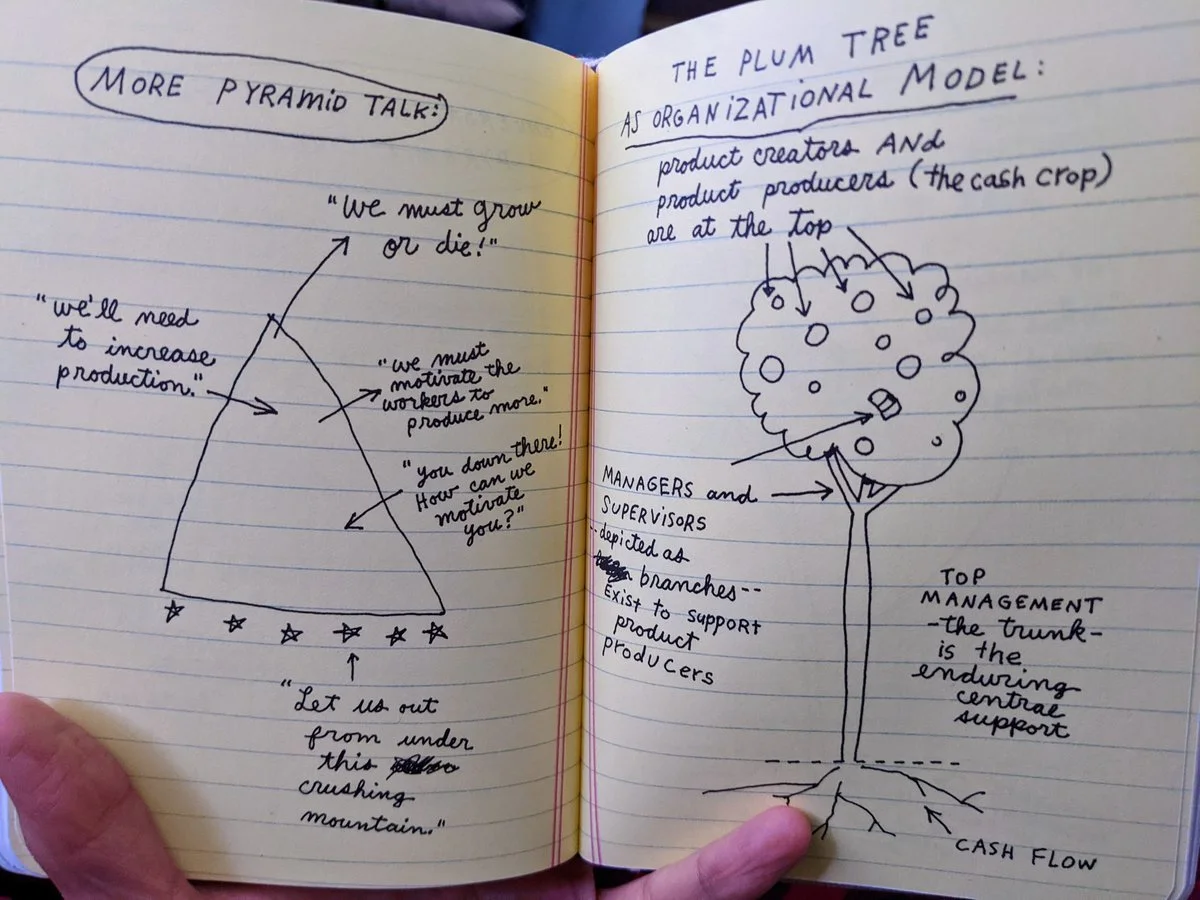 MORE PYRAMID TALK:
"We must grow
or die!"
"we'll need
to increase
production."
"we must
motivate the
workers to
produce more."
"you down there!
How can we
motivate
you?"
"Let us out
from under
this
crushing
mountain."
THE PLUM TREE
AS ORGANIZATIONAL MODEL:
product creators AND
product producers (the cash crop)
are at the top
MANAGERS and
SUPERVISORS
--depicted as
branches--
EXIST to SUPPORT
product
producers
TOP
MANAGEMENT
-the trunk-
is the
enduring
central
support
CASH FLOW